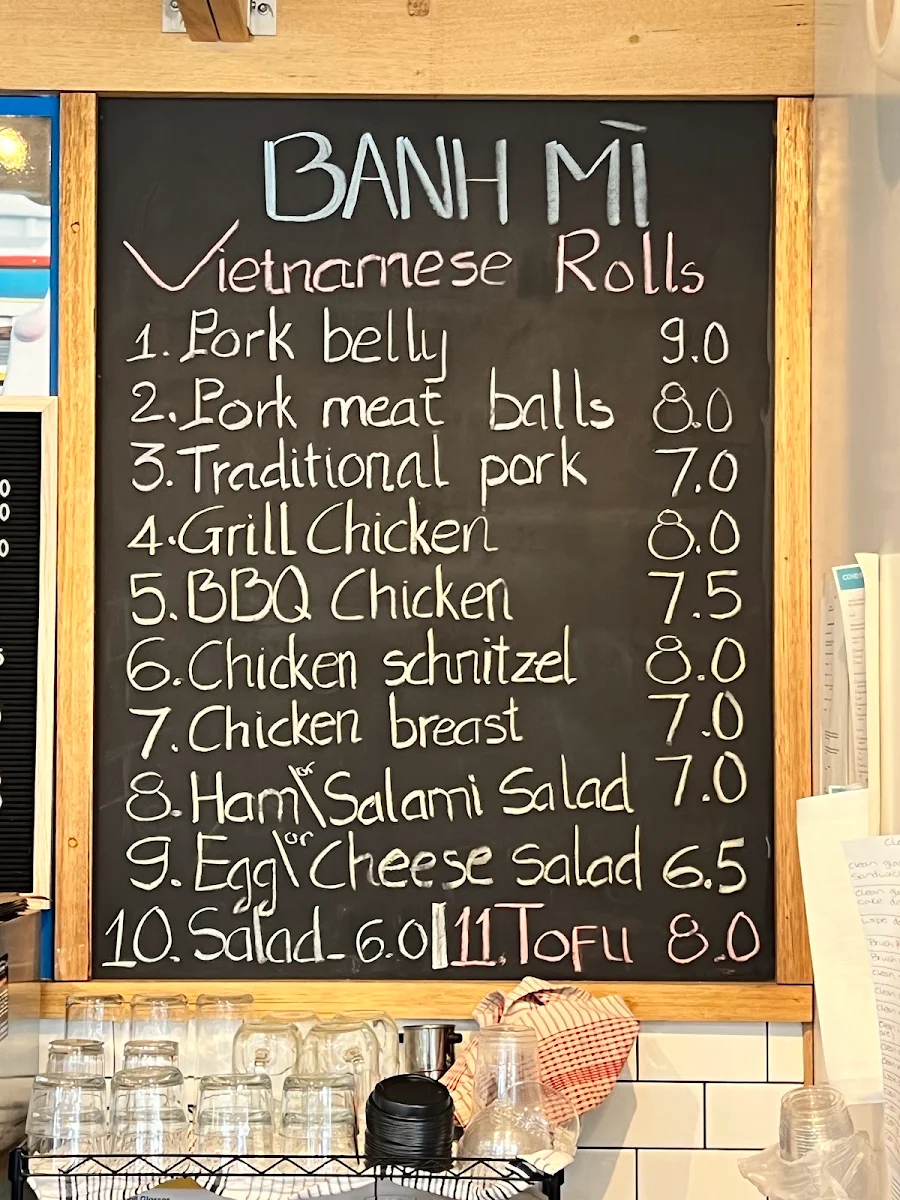 BANH MÌ
Vietnamese Rolls
1. Pork belly 9.0
2. Pork meat balls 8.0
3. Traditional pork 7.0
4. Grill Chicken 8.0
5. BBQ Chicken 7.5
6. Chicken schnitzel 8.0
7. Chicken breast 7.0
8. Ham\or Salami Salad 7.0
9. Egg\or Cheese Salad 6.5
10. Salad - 6.0 | 11. TOFU 8.0